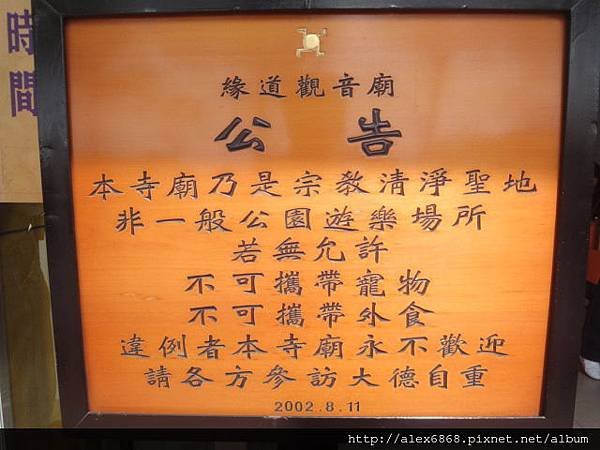 時間
緣道觀音廟
公告
本寺廟乃是宗教清淨聖地
非一般公園遊樂場所
若無允許
不可攜帶寵物
不可攜帶外食
違例者本寺廟永不歡迎
請各方參訪大德自重
2002.8.11
http://alex6868.pixnet.net/album